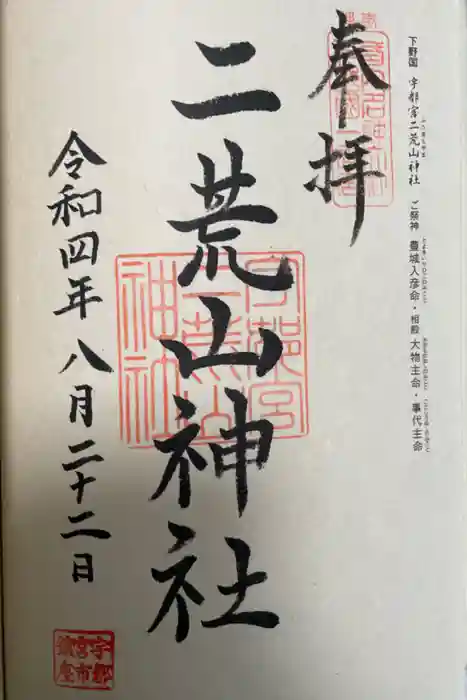 下野国 宇都宮二荒山神社 ご祭神 豊城入彦命・相殿 大物主命・事代主命
奉拝
二荒山神社
宇都宮
二荒山
神社
令和四年八月二十二日
宇都
宮市
鎮座